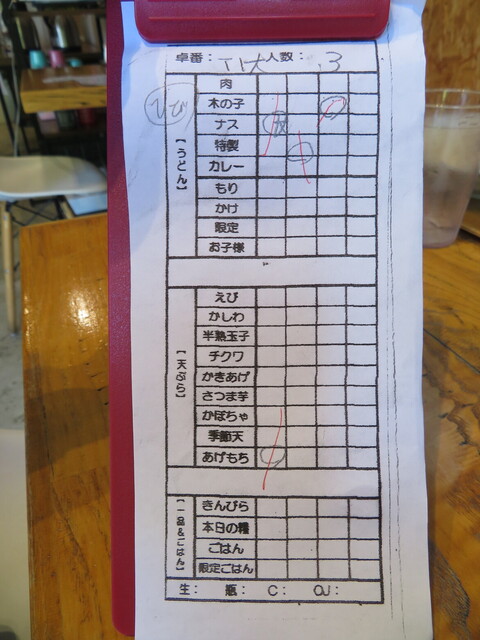 卓番： 人数： 3
【うどん】
肉
木の子
ナス
特製
カレー
もり
かけ
限定
お子様
【天ぷら】
えび
かしわ
半熟玉子
チクワ
かきあげ
さつま芋
かぼちゃ
季節天
あげもち
【一品&ごはん】
きんぴら
本日の糧
ごはん
限定ごはん
生： 瓶： C： OJ：